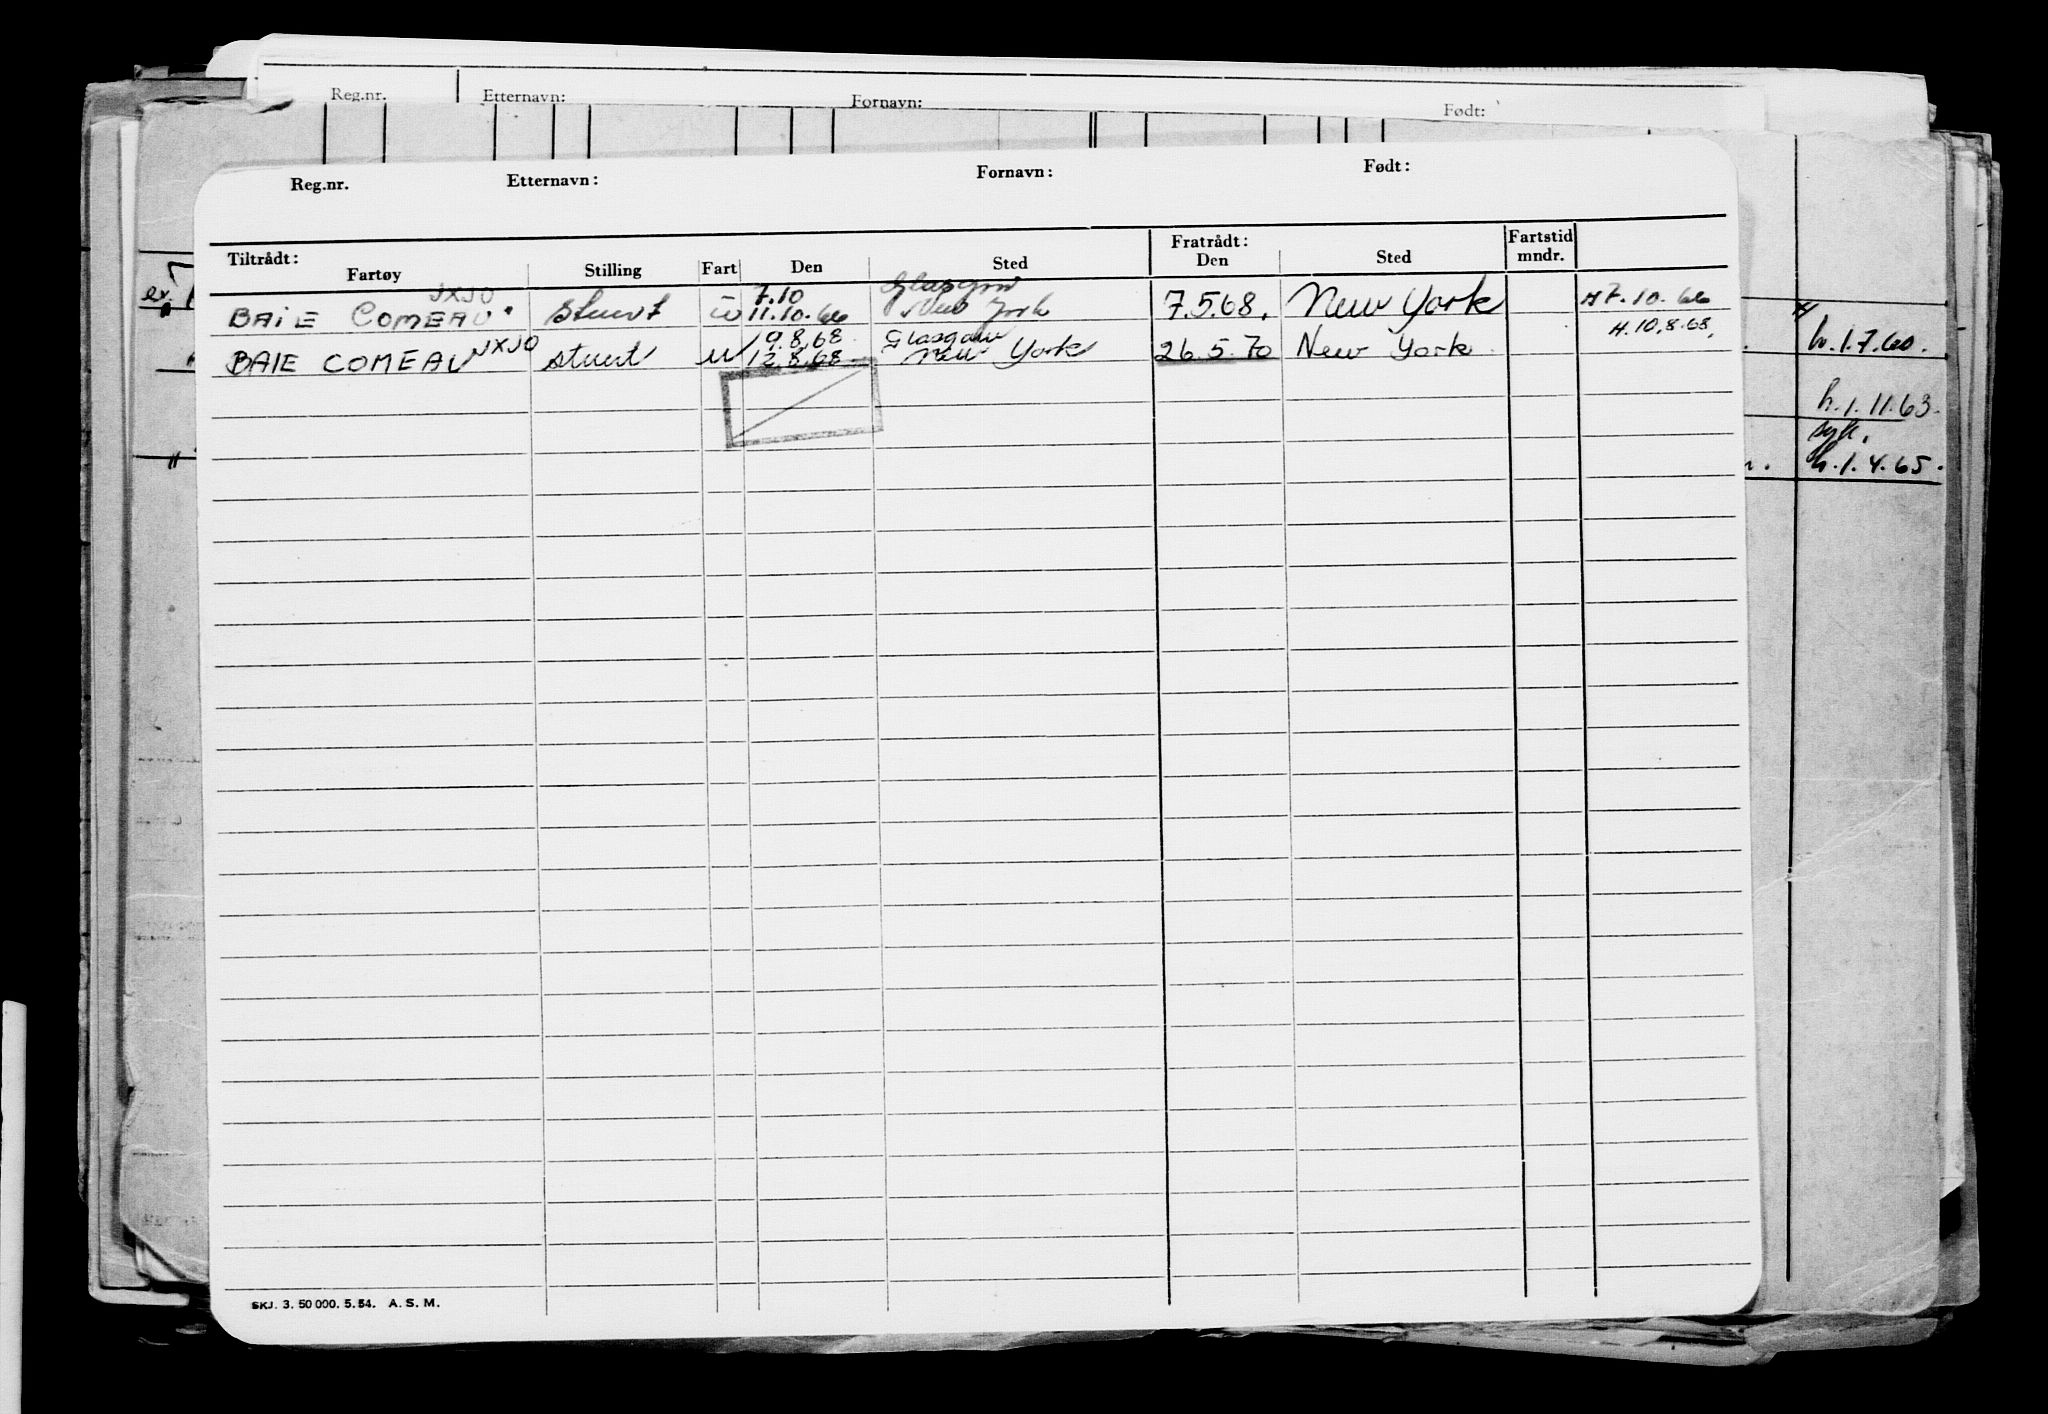 Reg.nr. Etternavn: Fornavn: Født:
Reg.nr. Etternavn: Fornavn: Født:
Tiltrådt: Fratrådt: Fartstid
Fartøy Stilling Fart Den Sted Den Sted mndr.
JXJO 7.10 Glasgow
BAIE COMEAU stuert u 11.10.66 New York 7.5.68. New York H 7.10.66
JXJO 9.8.68 Glasgow H.10.8.68.
BAIE COMEAU stuert u 12.8.68 New York 26.5.70 New York
ex.
h.1.7.60.
h.1.11.63.
syk.
h.1.4.65.
SKJ. 3. 50 000. 5. 54. A. S. M.